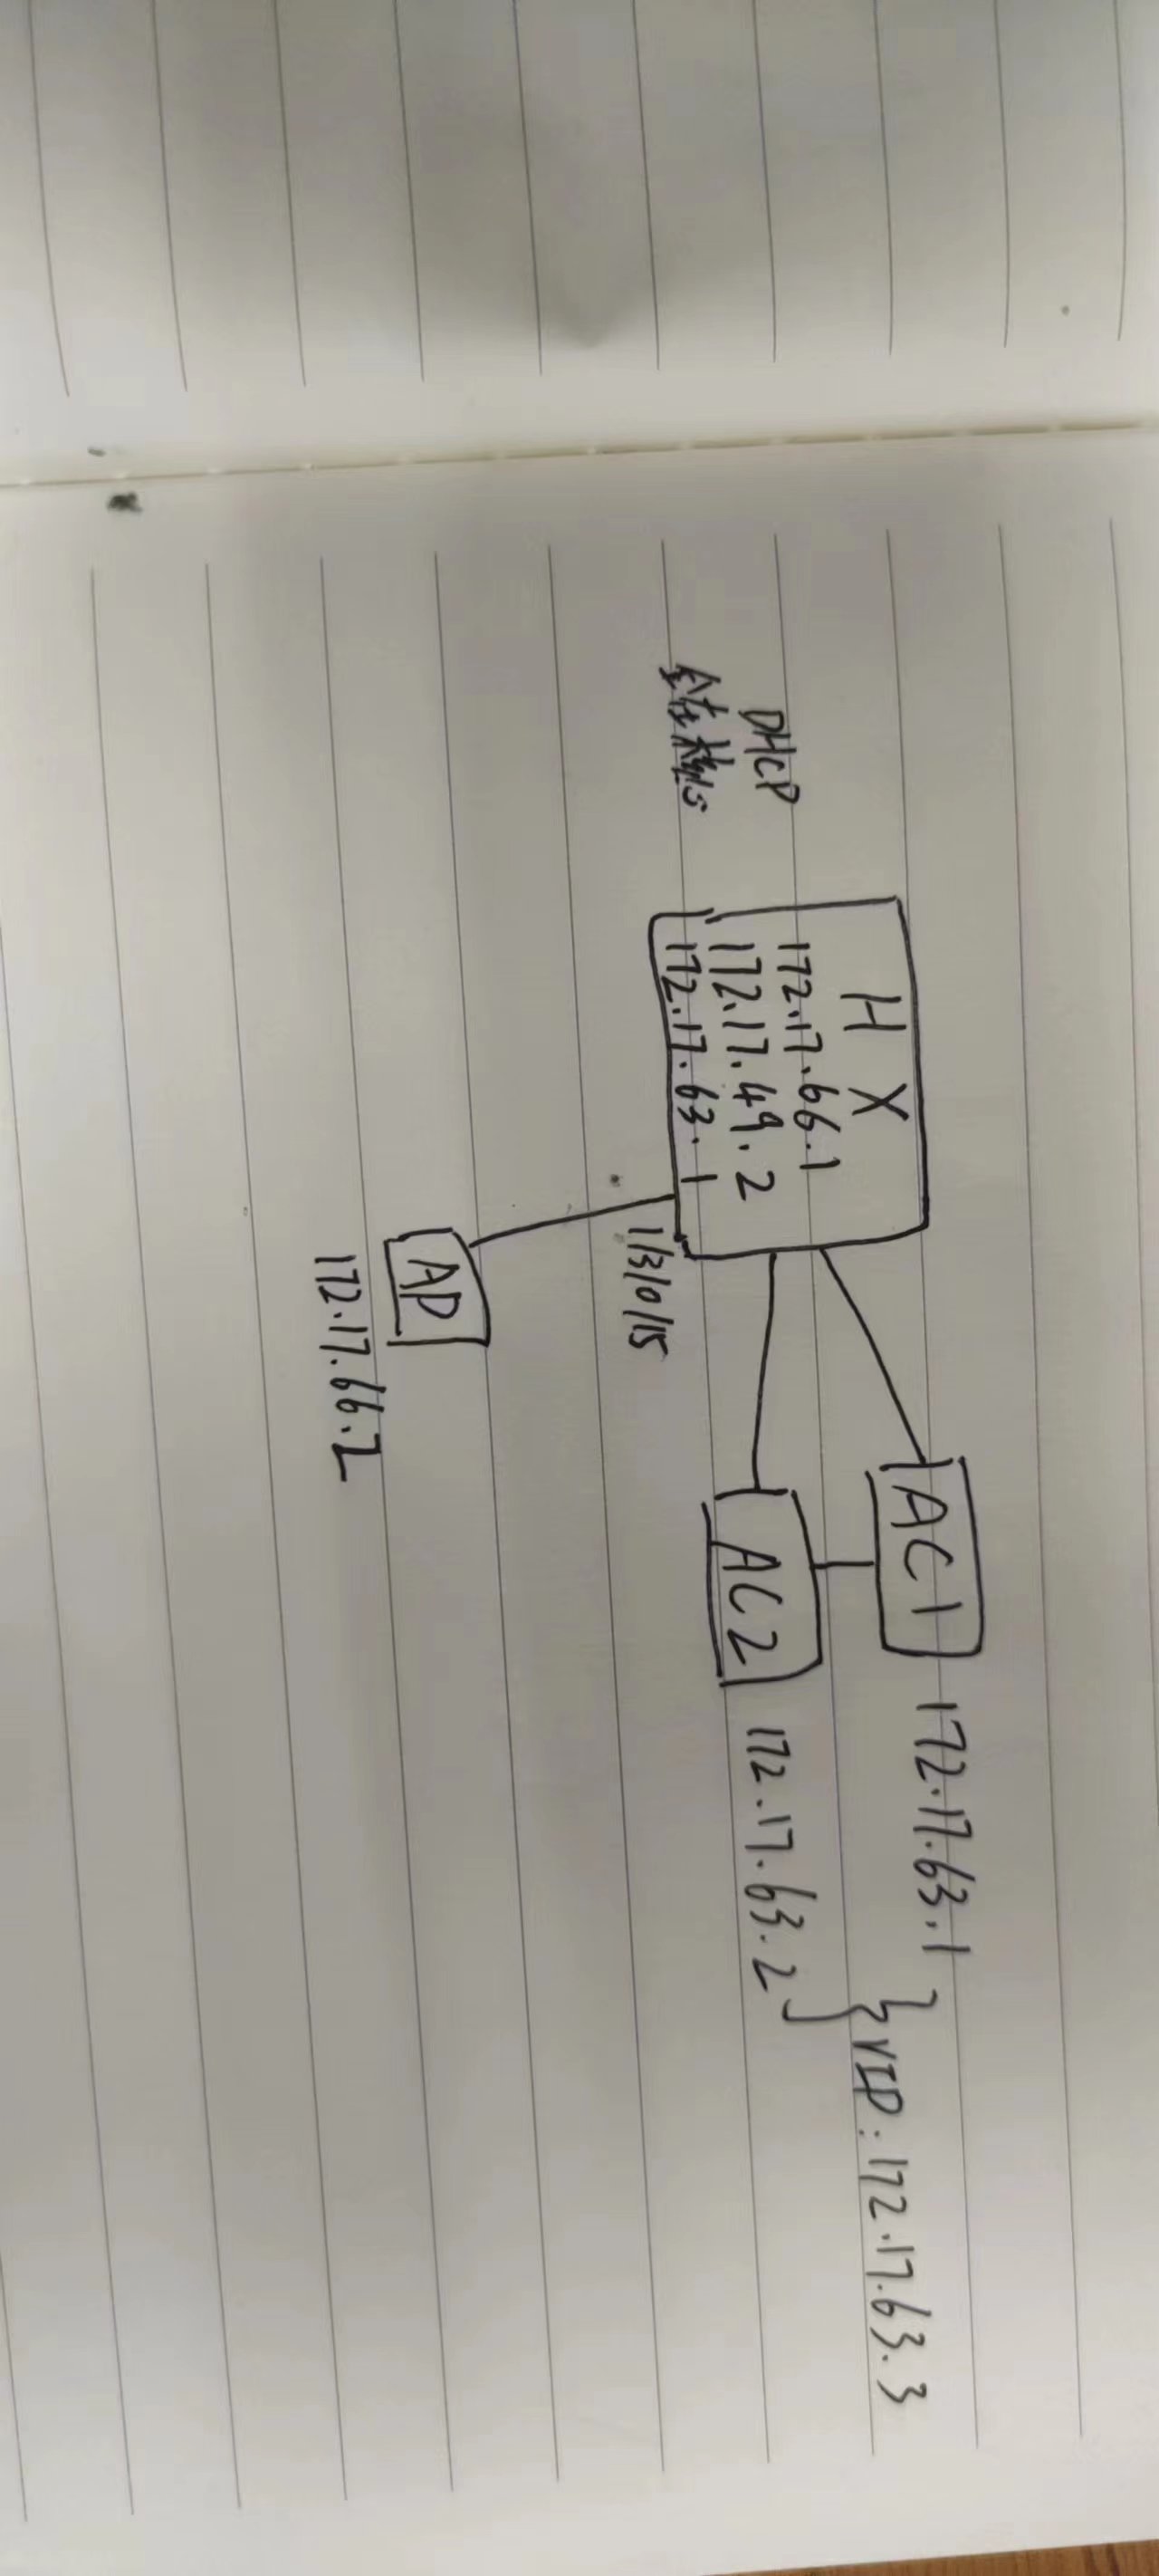 H X
172.17.66.1
172.17.49.2
172.17.63.1
DHCP
全在核心
1/3/0/15
AP
172.17.66.2
AC1
172.17.63.1
AC2
172.17.63.2
VIP: 172.17.63.3